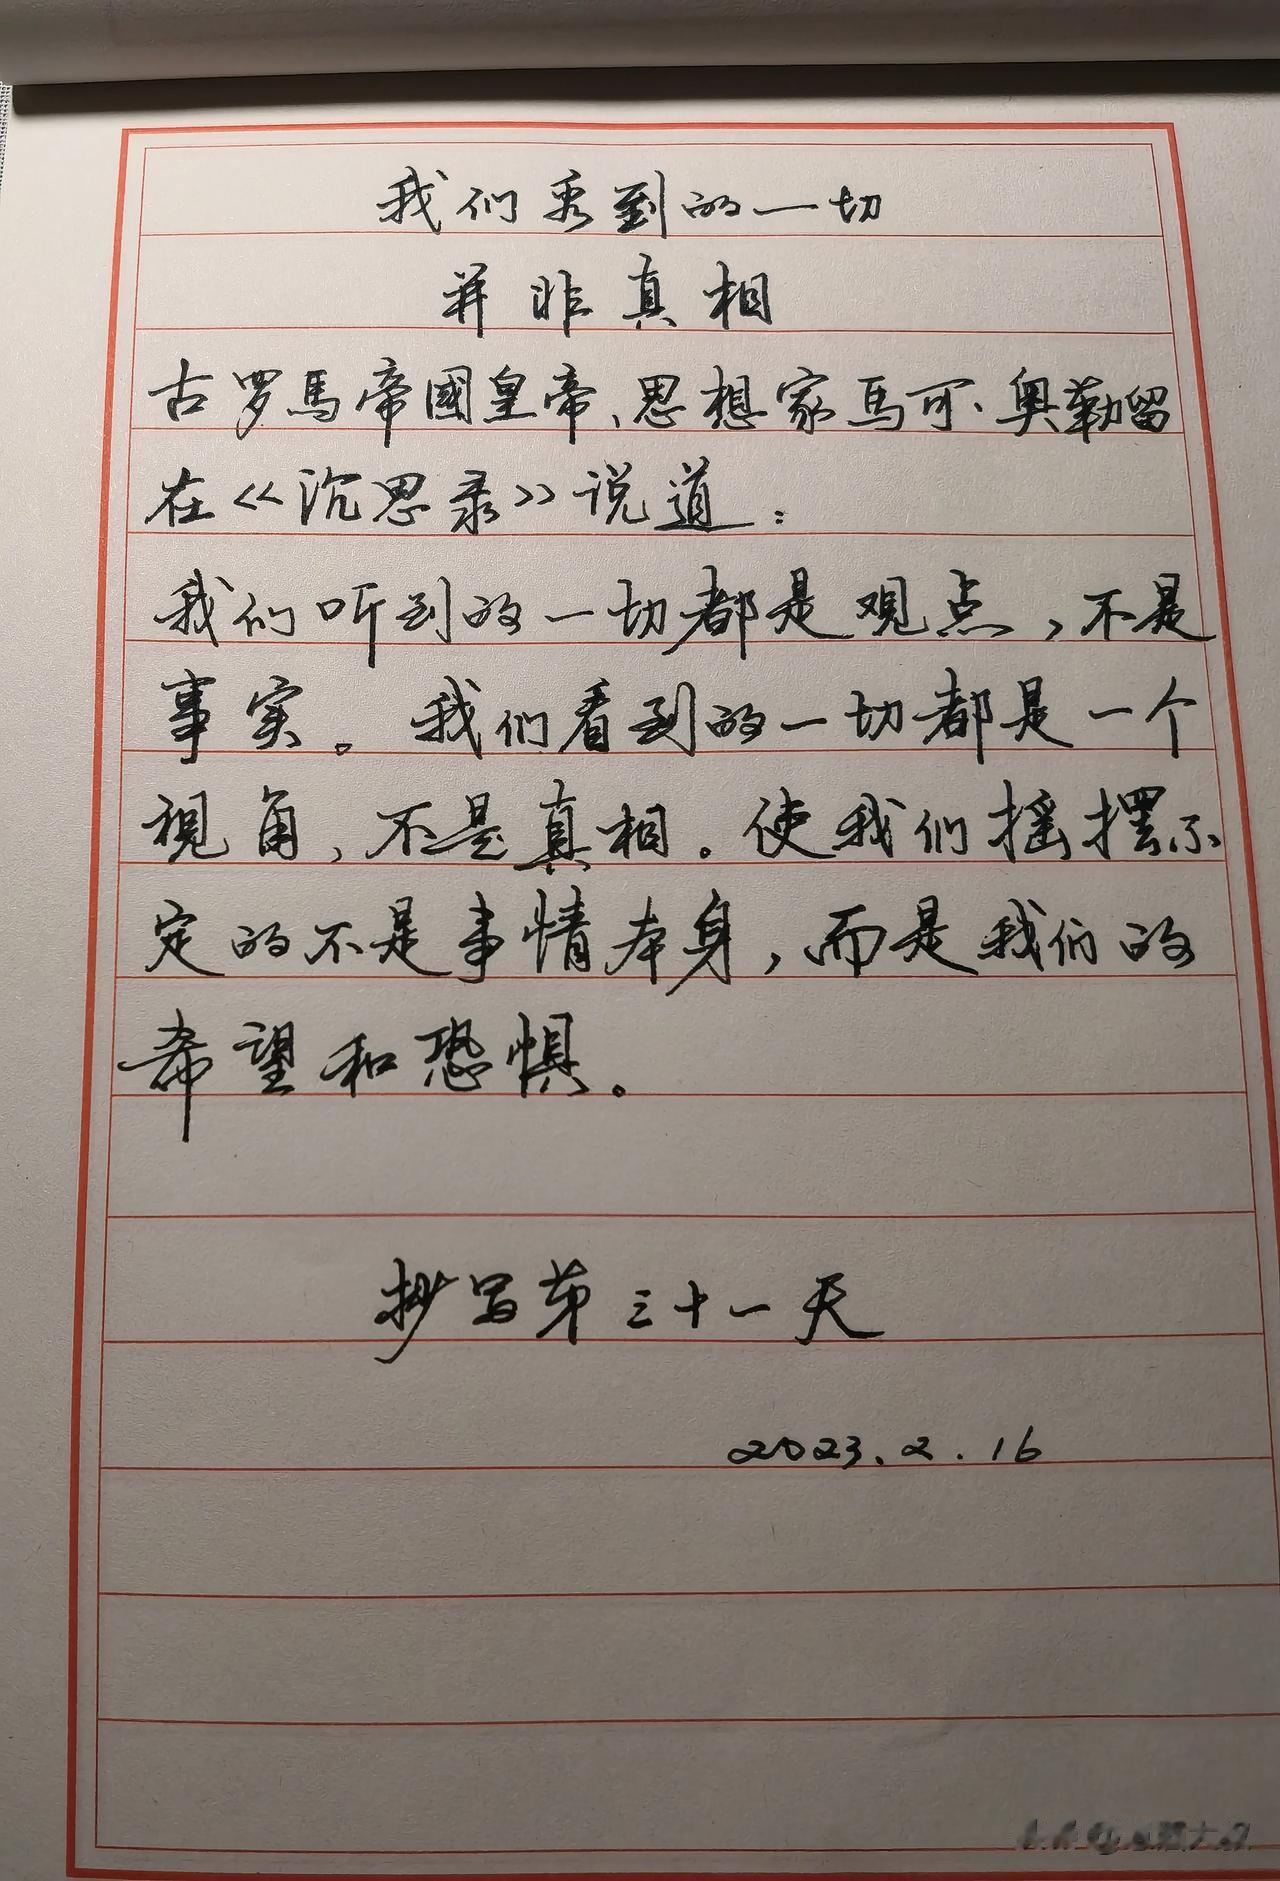 我们看到的一切
并非真相
古罗馬帝國皇帝、思想家馬可·奥勒留
在《沉思录》说道:
我们听到的一切都是观点,不是
事实。我们看到的一切都是一个
視角,不是真相。使我们摇摆不
定的不是事情本身,而是我们的
希望和恐惧。
抄写第三十一天
2023.2.16